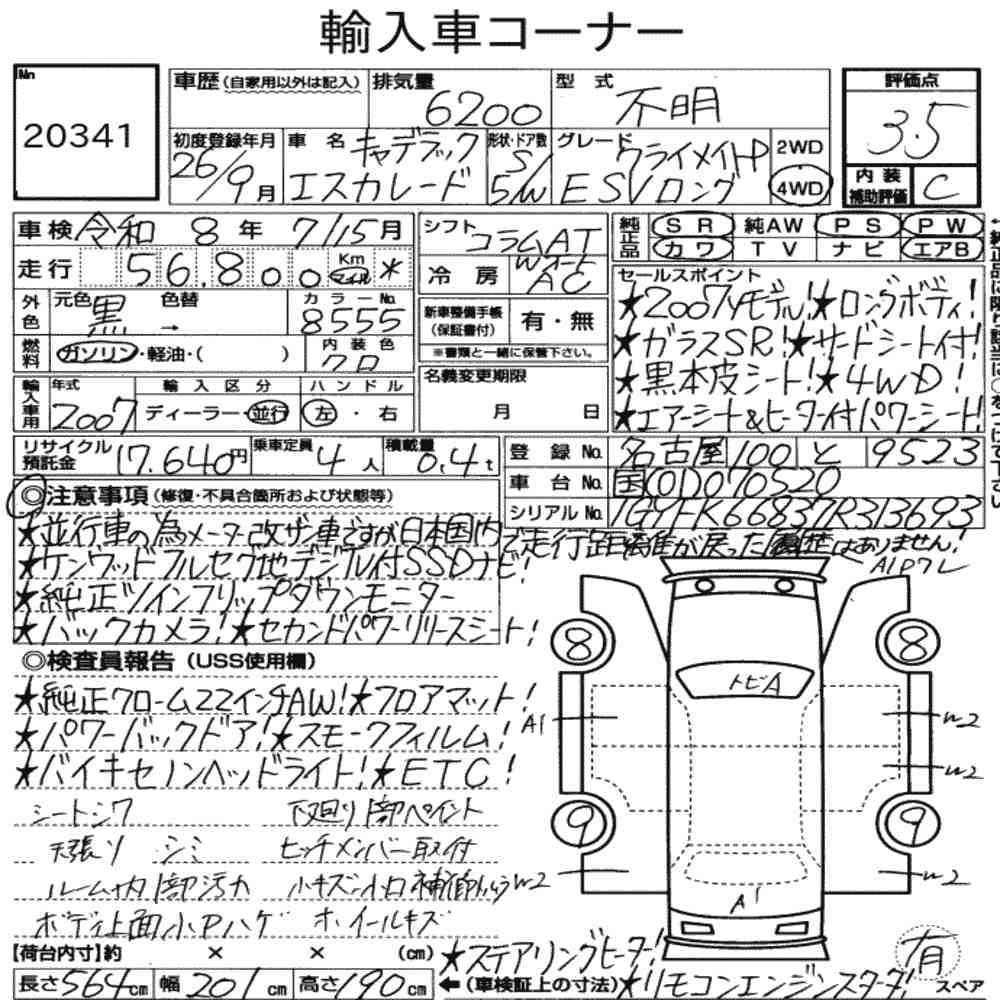 輸入車コーナー
No
20341
車歴 (自家用以外は記入)
排気量
6200
型式
不明
評価点
3.5
初度登録年月
26/9月
車名
キャデラック
エスカレード
形状・ドア数
5/W
グレード
クライメイトP
ESVロング
2WD
4WD
内装
補助評価
C
車検 令和 8年 7/15月
シフト
コラムAT
純正品
SR 純AW PS PW
カワ TV ナビ エアB
走行 56,800 Km マイル *
冷房
Wオート
AC
外色
元色 黒
→
色替
カラーNo.
8555
新車整備手帳
(保証書付)
有・無
※書類と一緒に保管下さい。
燃料
ガソリン・軽油・( )
内装色
クロ
セールスポイント
★2007yモデル!★ロングボディ!
★ガラスSR!★サードシート付!
★黒本皮シート!★4WD!
★エアーシート&ヒーター付パワーシート!
名義変更期限
月 日
輸入車用
年式
2007
輸入区分
ディーラー・並行
ハンドル
左・右
リサイクル
預託金
17,640円
乗車定員
4人
積載量
0.4t
登録No.
名古屋 100 と 9523
車台No.
国(01)070520
シリアルNo.
1GYFK66837R313693
◎注意事項 (修復・不具合箇所および状態等)
★並行車の為メーター改ザン車ですが日本国内で走行距離が戻った履歴はありません!
★ケンウッドフルセグ地デジTV付SSDナビ!
★純正ツインフリップダウンモニター
★バックカメラ!★セカンドパワーリリースシート!
◎検査員報告 (USS使用欄)
★純正クローム22インチAW!★フロアマット!
★パワーバックドア!★スモークフィルム!
★バイキセノンヘッドライト!★ETC!
シートシワ
下廻り1部ペイント
天張り シミ
ヒッチメンバー取付
ルーム内1部汚れ
小キズ小凹補修
ボディ上面小Pハゲ
ホイールキズ
【荷台内寸】約 × × (cm)
長さ564cm 幅201cm 高さ190cm
★ステアリングヒーター!
← (車検証上の寸法) ★リモコンエンジンスターター!
A1Pワレ
8
8
トビA
A1
W2
W2
9
9
W2
W2
A1
有
スペア